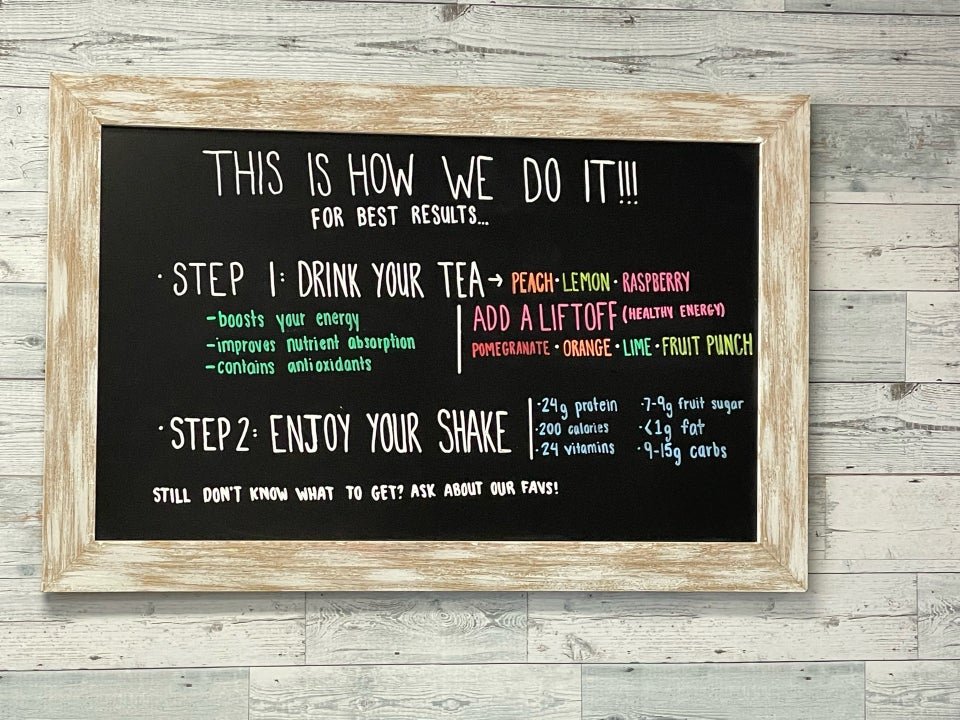 THIS IS HOW WE DO IT!!!
FOR BEST RESULTS...
· STEP 1: DRINK YOUR TEA → PEACH · LEMON · RASPBERRY
- boosts your energy
- improves nutrient absorption
- contains antioxidants
ADD A LIFTOFF (HEALTHY ENERGY)
POMEGRANATE · ORANGE · LIME · FRUIT PUNCH
· STEP 2: ENJOY YOUR SHAKE
· 24g protein
· 200 calories
· 24 vitamins
· 7-9g fruit sugar
· <1g fat
· 9-15g carbs
STILL DON'T KNOW WHAT TO GET? ASK ABOUT OUR FAVS!